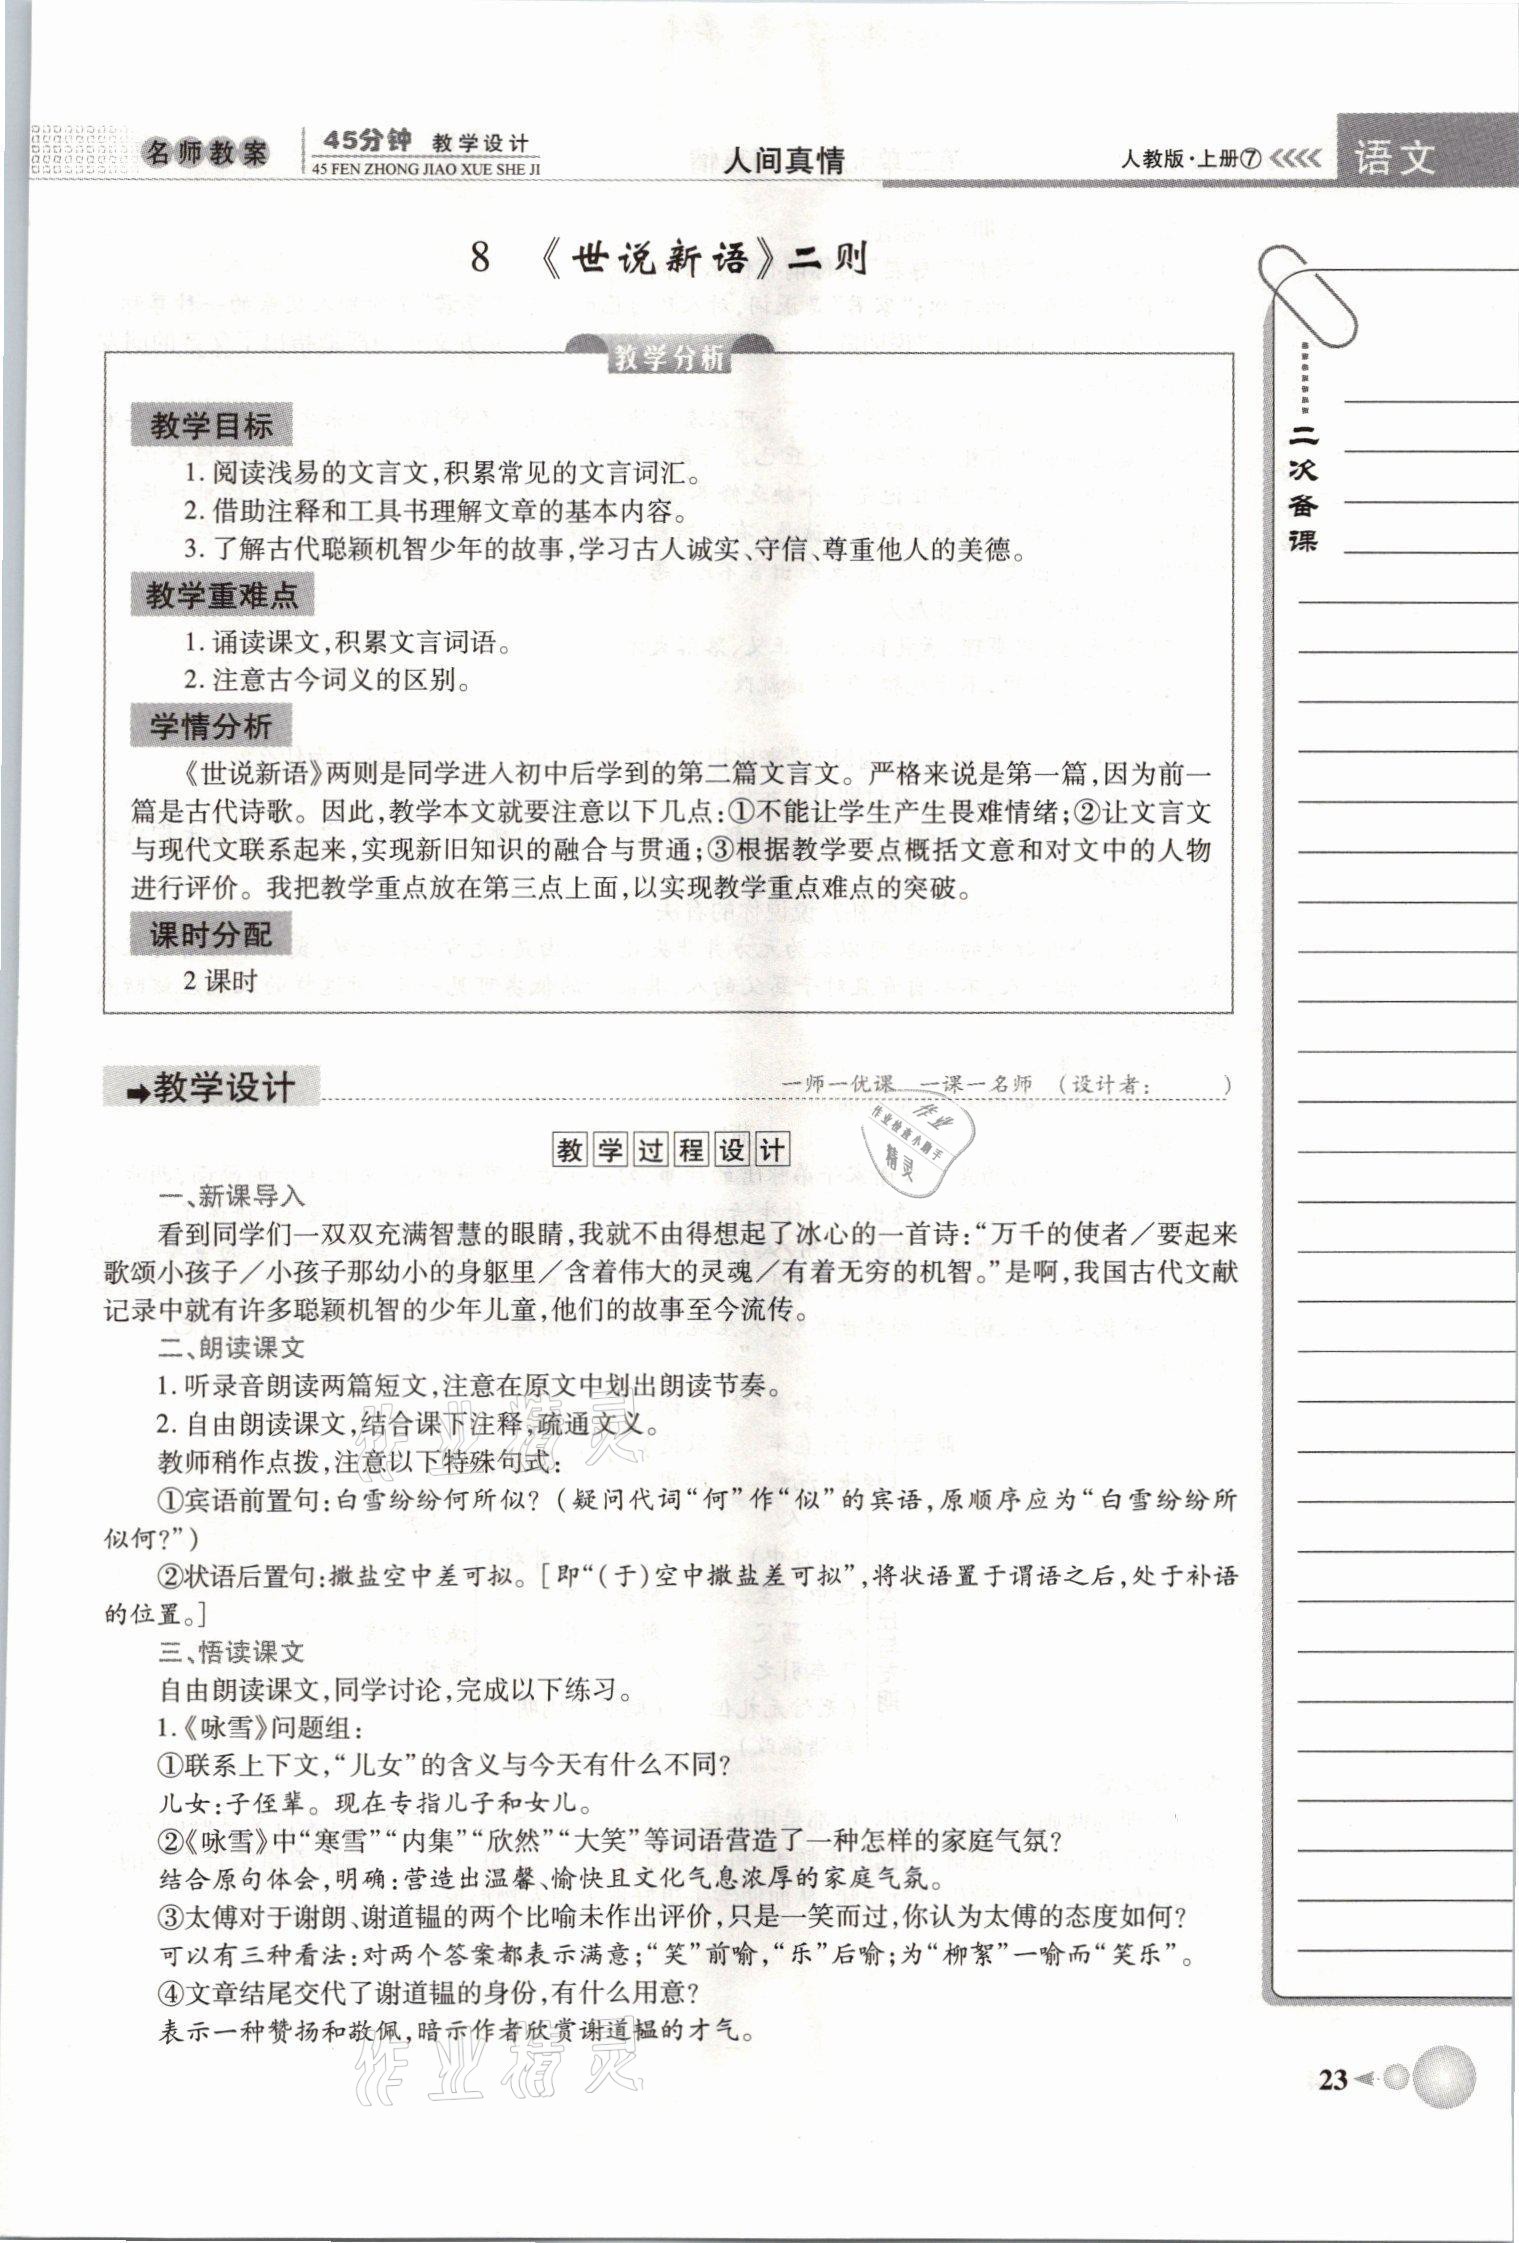 名师教案
45分钟 教学设计
45 FEN ZHONG JIAO XUE SHE JI
人间真情
人教版·上册⑦
语文
8 《世说新语》二则
教学分析
教学目标
1. 阅读浅易的文言文，积累常见的文言词汇。
2. 借助注释和工具书理解文章的基本内容。
3. 了解古代聪颖机智少年的故事，学习古人诚实、守信、尊重他人的美德。
教学重难点
1. 诵读课文，积累文言词语。
2. 注意古今词义的区别。
学情分析
《世说新语》两则是同学进入初中后学到的第二篇文言文。严格来说是第一篇，因为前一
篇是古代诗歌。因此，教学本文就要注意以下几点：①不能让学生产生畏难情绪；②让文言文
与现代文联系起来，实现新旧知识的融合与贯通；③根据教学要点概括文意和对文中的人物
进行评价。我把教学重点放在第三点上面，以实现教学重点难点的突破。
课时分配
2 课时
教学设计
一师一优课 一课一名师 （设计者： ）
教学过程设计
一、新课导入
看到同学们一双双充满智慧的眼睛，我就不由得想起了冰心的一首诗：“万千的使者／要起来
歌颂小孩子／小孩子那幼小的身躯里／含着伟大的灵魂／有着无穷的机智。”是啊，我国古代文献
记录中就有许多聪颖机智的少年儿童，他们的故事至今流传。
二、朗读课文
1. 听录音朗读两篇短文，注意在原文中划出朗读节奏。
2. 自由朗读课文，结合课下注释，疏通文义。
教师稍作点拨，注意以下特殊句式：
①宾语前置句：白雪纷纷何所似？（疑问代词“何”作“似”的宾语，原顺序应为“白雪纷纷所
似何？”）
②状语后置句：撒盐空中差可拟。［即“（于）空中撒盐差可拟”，将状语置于谓语之后，处于补语
的位置。］
三、悟读课文
自由朗读课文，同学讨论，完成以下练习。
1.《咏雪》问题组：
①联系上下文，“儿女”的含义与今天有什么不同？
儿女：子侄辈。现在专指儿子和女儿。
②《咏雪》中“寒雪”“内集”“欣然”“大笑”等词语营造了一种怎样的家庭气氛？
结合原句体会，明确：营造出温馨、愉快且文化气息浓厚的家庭气氛。
③太傅对于谢朗、谢道韫的两个比喻未作出评价，只是一笑而过，你认为太傅的态度如何？
可以有三种看法：对两个答案都表示满意；“笑”前喻，“乐”后喻；为“柳絮”一喻而“笑乐”。
④文章结尾交代了谢道韫的身份，有什么用意？
表示一种赞扬和敬佩，暗示作者欣赏谢道韫的才气。
二次备课
23
作业
作业检查小助手
精灵
作业精灵
作业精灵